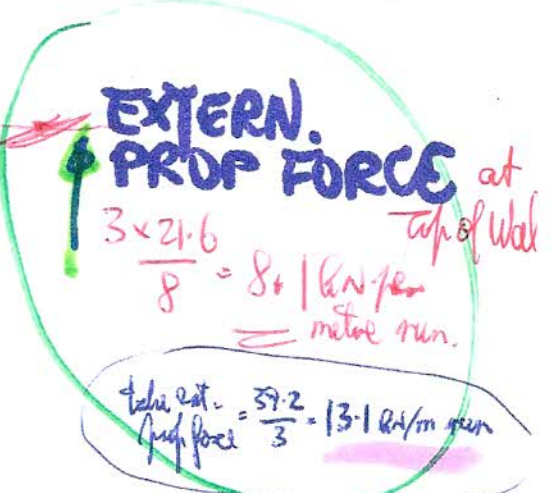 EXTERN.
PROP FORCE at
top of Wall
3 × 21.6
8 = 8.1 kN per
metre run.
take ext.
prop force = 39.2
3 = 13.1 kN/m run